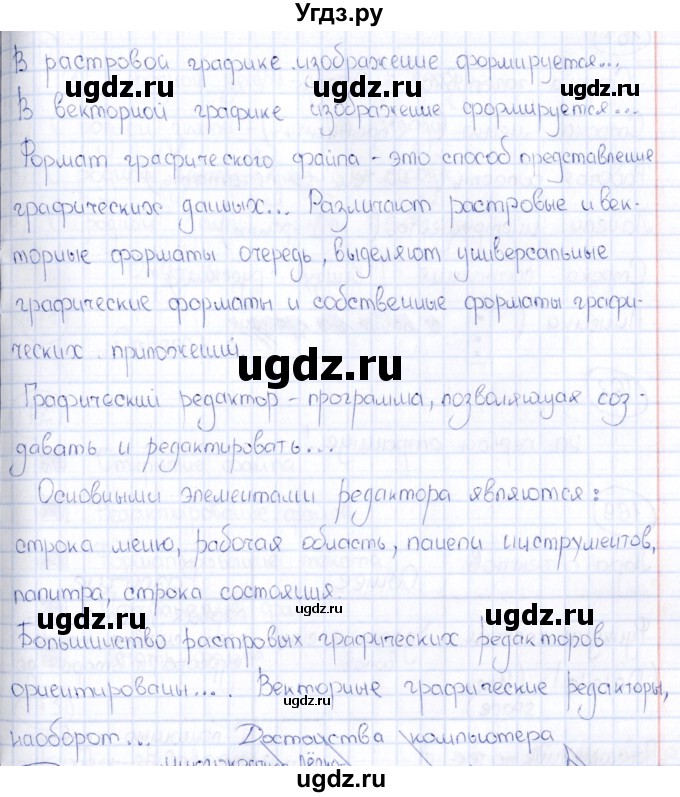 Угдз.ру
В растровой графике изображение формируется...
В векторной графике изображение формируется...
Формат графического файла - это способ представление
графических данных... Различают растровые и век-
торные форматы очередь, выделяют универсальные
графические форматы и собственные форматы графи-
ческих приложений
Графический редактор - программа, позволяющая соз-
давать и редактировать...
Основными элементами редактора являются:
строка меню, рабочая область, панели инструментов,
палитра, строка состояния.
Большинство растровых графических редакторов
ориентированы... . Векторные графические редакторы,
наоборот... Достоинства компьютера
ugdz.ru
ugdz.ru
ugdz.ru
ugdz.ru
ugdz.ru
ugdz.ru
ugdz.ru
ugdz.ru
ugdz.ru
ugdz.ru
ugdz.ru